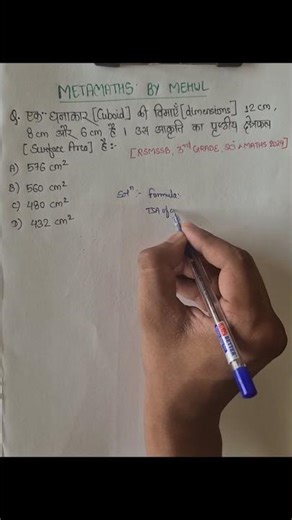 METAMATHS BY MEHUL
Q. एक घनाकार [Cuboid] की विमाएँ [dimensions] 12 cm,
8 cm और 6 cm है । उस आकृति का पृष्ठीय क्षेत्रफल
[Surface Area] है:-
[RSMSSB, 3RD GRADE, SCI & MATHS 2024]
A) 576 cm²
B) 560 cm²
C) 480 cm²
D) 432 cm²
Solⁿ :- Formula:
TSA of